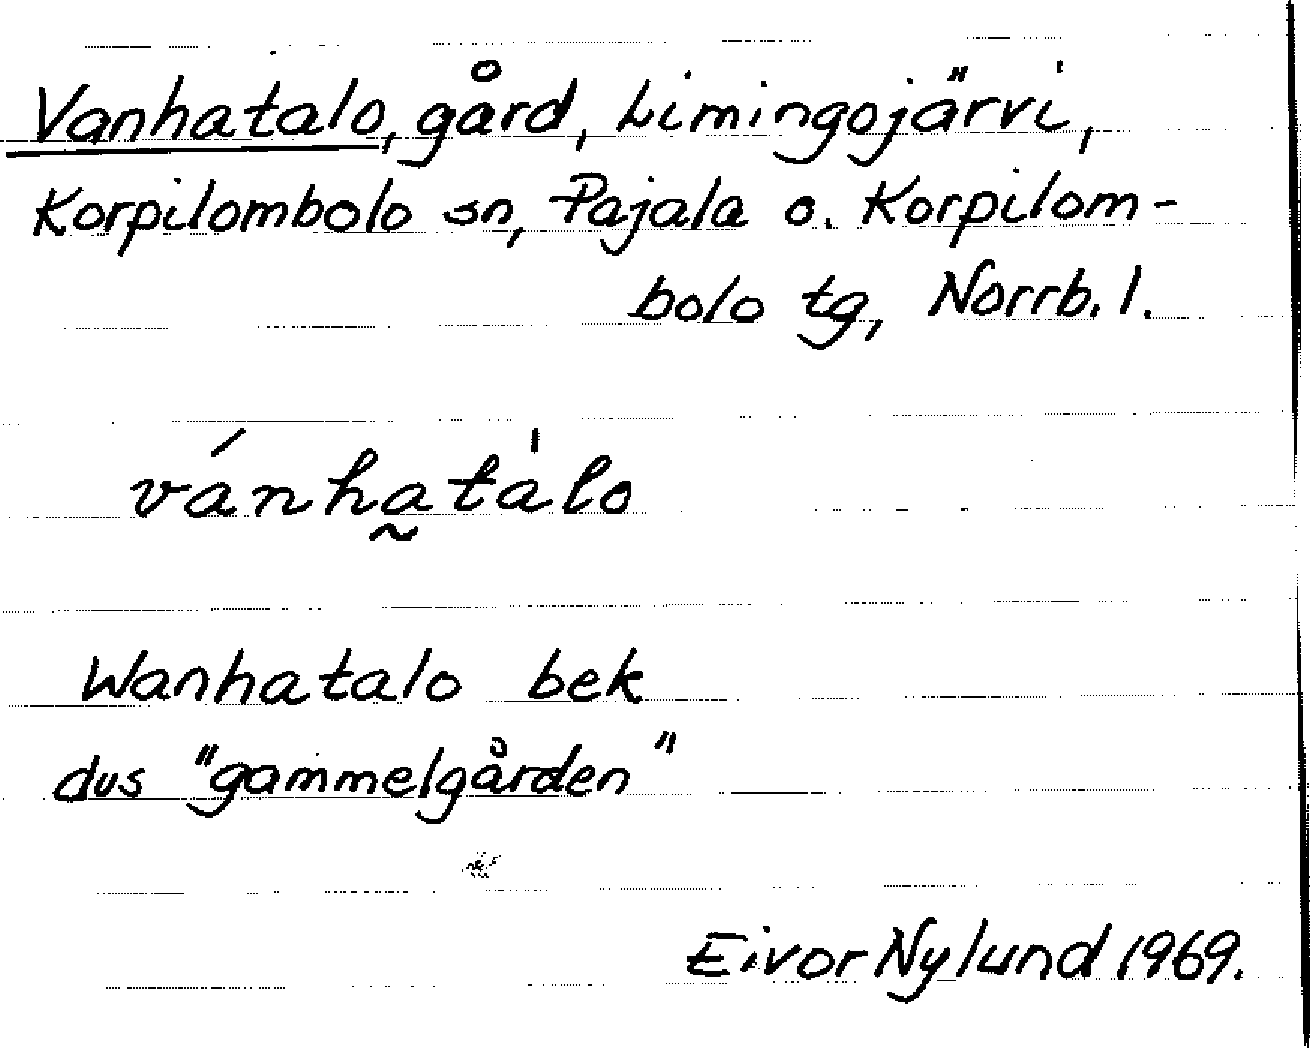 Vanhatalo, gård, Limingojärvi,
Korpilombolo sn, Pajala o. Korpilom-
bolo tg, Norrb. l.
vánha̰ta̍lo
Wanhatalo bek
dus "gammelgården"
Eivor Nylund 1969.